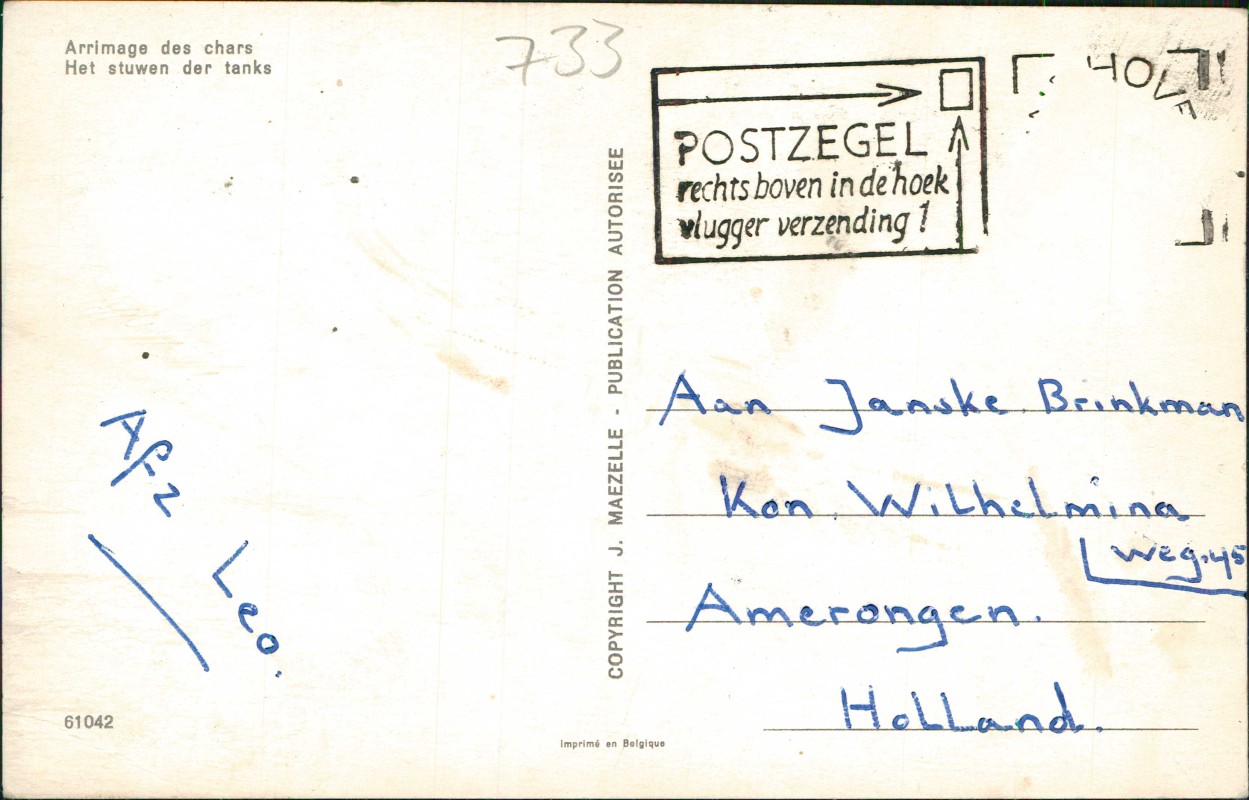 Arrimage des chars
Het stuwen der tanks
733
POSTZEGEL
rechts boven in de hoek
vlugger verzending !
HOVE
COPYRIGHT J. MAEZELLE - PUBLICATION AUTORISEE
Afz
Leo.
Aan Janske Brinkman
Kon. Wilhelmina
weg.45
Amerongen.
Holland.
61042
Imprimé en Belgique